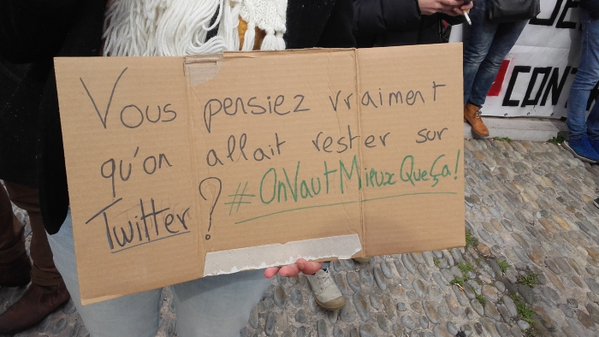 Vous pensiez vraiment
qu'on allait rester sur
Twitter ? #OnVautMieuxQueÇa!
CONT